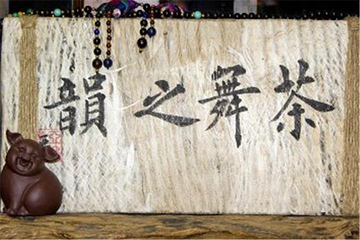 茶舞之韻